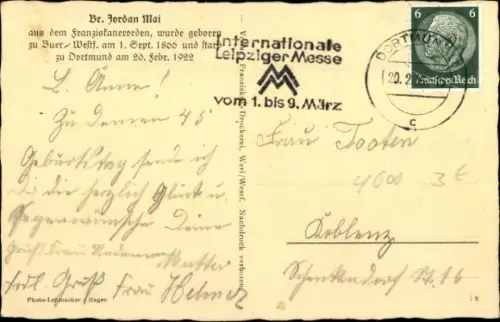 Br. Jordan Mai
aus dem Franziskanerorden, wurde geboren
zu Buer-Westf. am 1. Sept. 1866 und starb
zu Dortmund am 20. Febr. 1922
Internationale
Leipziger Messe
vom 1. bis 9. März
DORTMUND
20. 2.
c
6 6
Deutsches Reich
L. Änne!
Zu Deinem 45
Geburtstag sende ich
Dir die herzlich Glück u.
Segenwünsche Deine
Mutter
Grüß. Frau
frdl. Gruß Frau Helmer
Frau Tooten
4600 3€
Koblenz
Schenkendorf St. 16
Verl. Franziskus-Druckerei, Werl/Westf. Nachdruck verboten
Photo-Lehmacher / Hagen